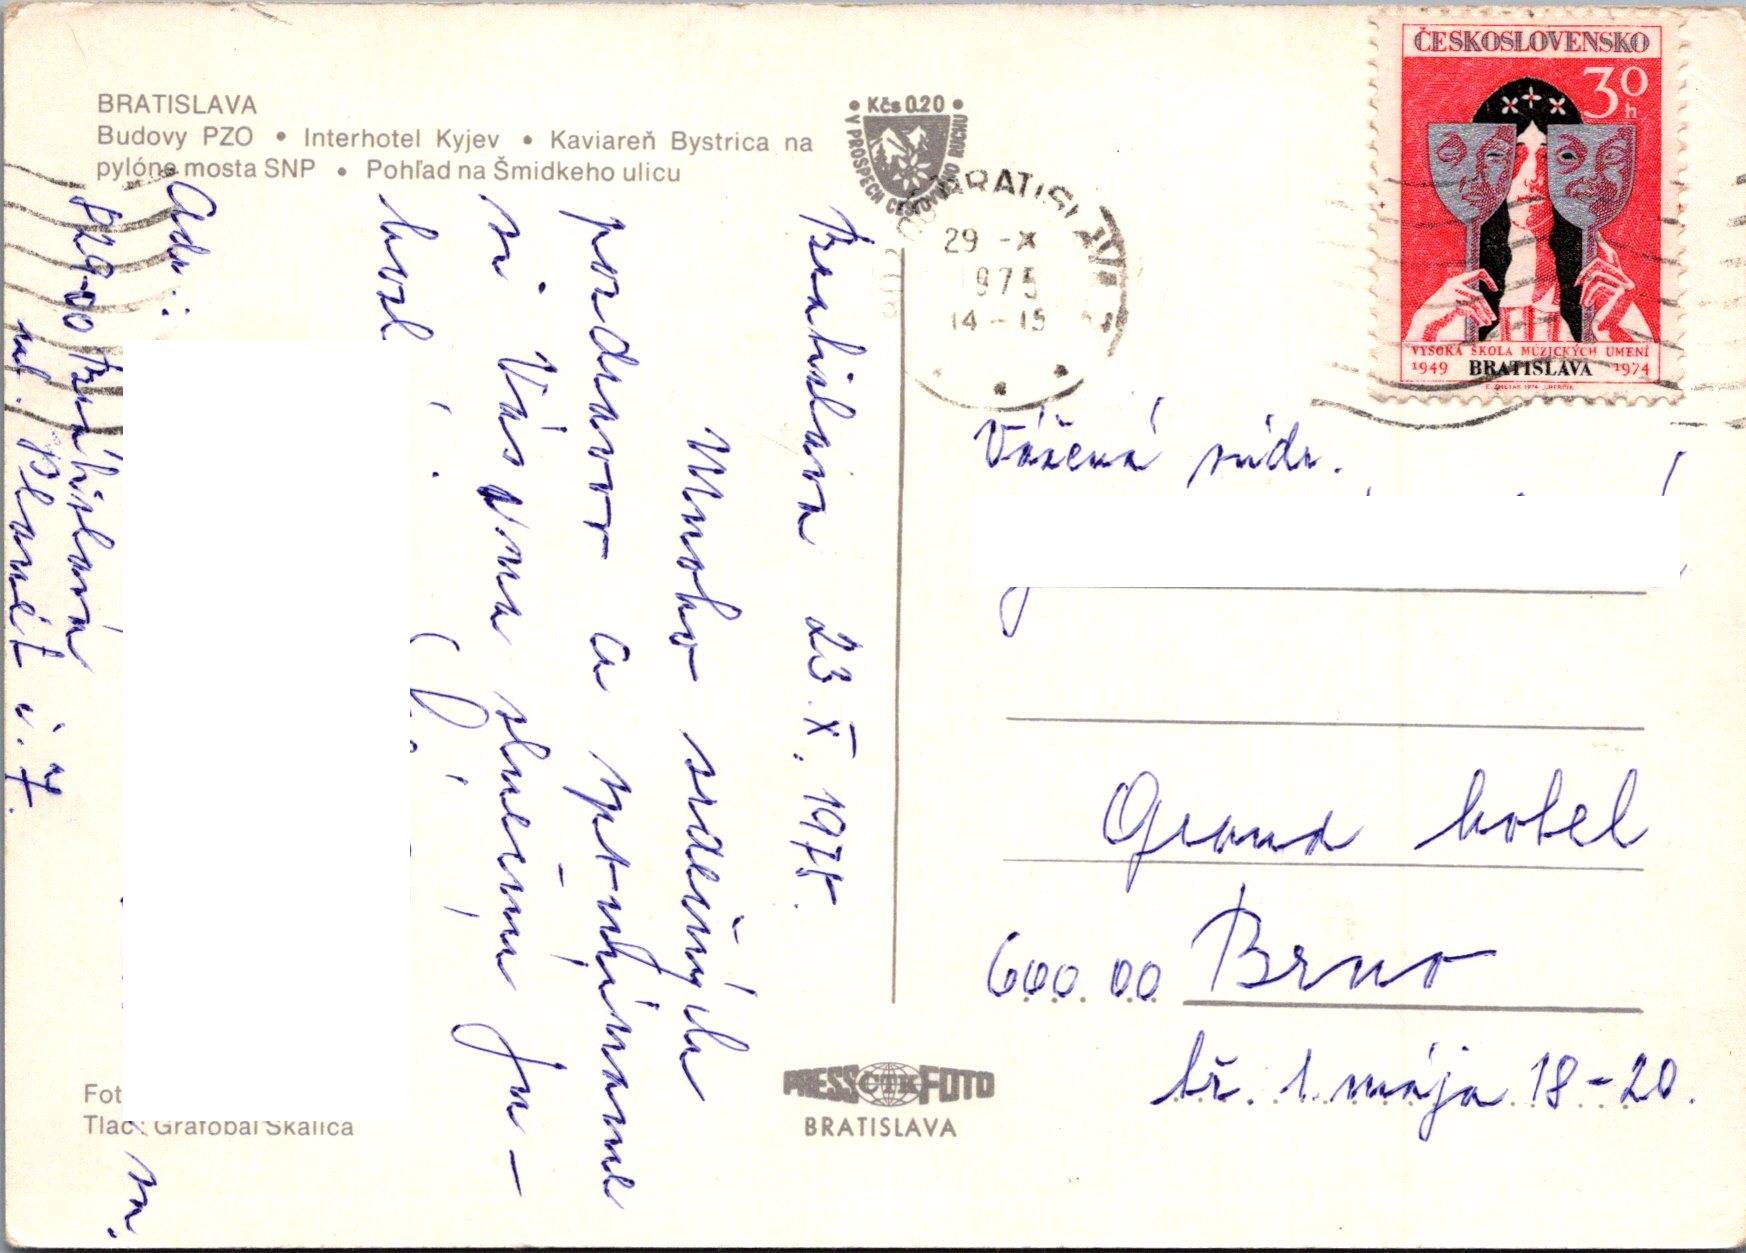 BRATISLAVA
Budovy PZO • Interhotel Kyjev • Kaviareň Bystrica na
pylóne mosta SNP • Pohľad na Šmidkeho ulicu
• Kčs 0.20 •
V PROSPECH CESTOVNÉHO RUCHU
BRATISLAVA
29 -X
1975
14 - 15
ČESKOSLOVENSKO
30 h
VYSOKÁ ŠKOLA MÚZICKÝCH UMENÍ
1949 BRATISLAVA 1974
Bratislava 23. X. 1975.
Mnoho srdečných
pozdravov a spomíname
si Vás
Adr:
829-00 Bratislava
ul. Planét č. 7.
Vážená súdr.
Grand hotel
600.00 Brno
tř. 1. mája 18-20.
Fot
Tlač: Grafobal Skalica
PRESS ČTK FOTO
BRATISLAVA